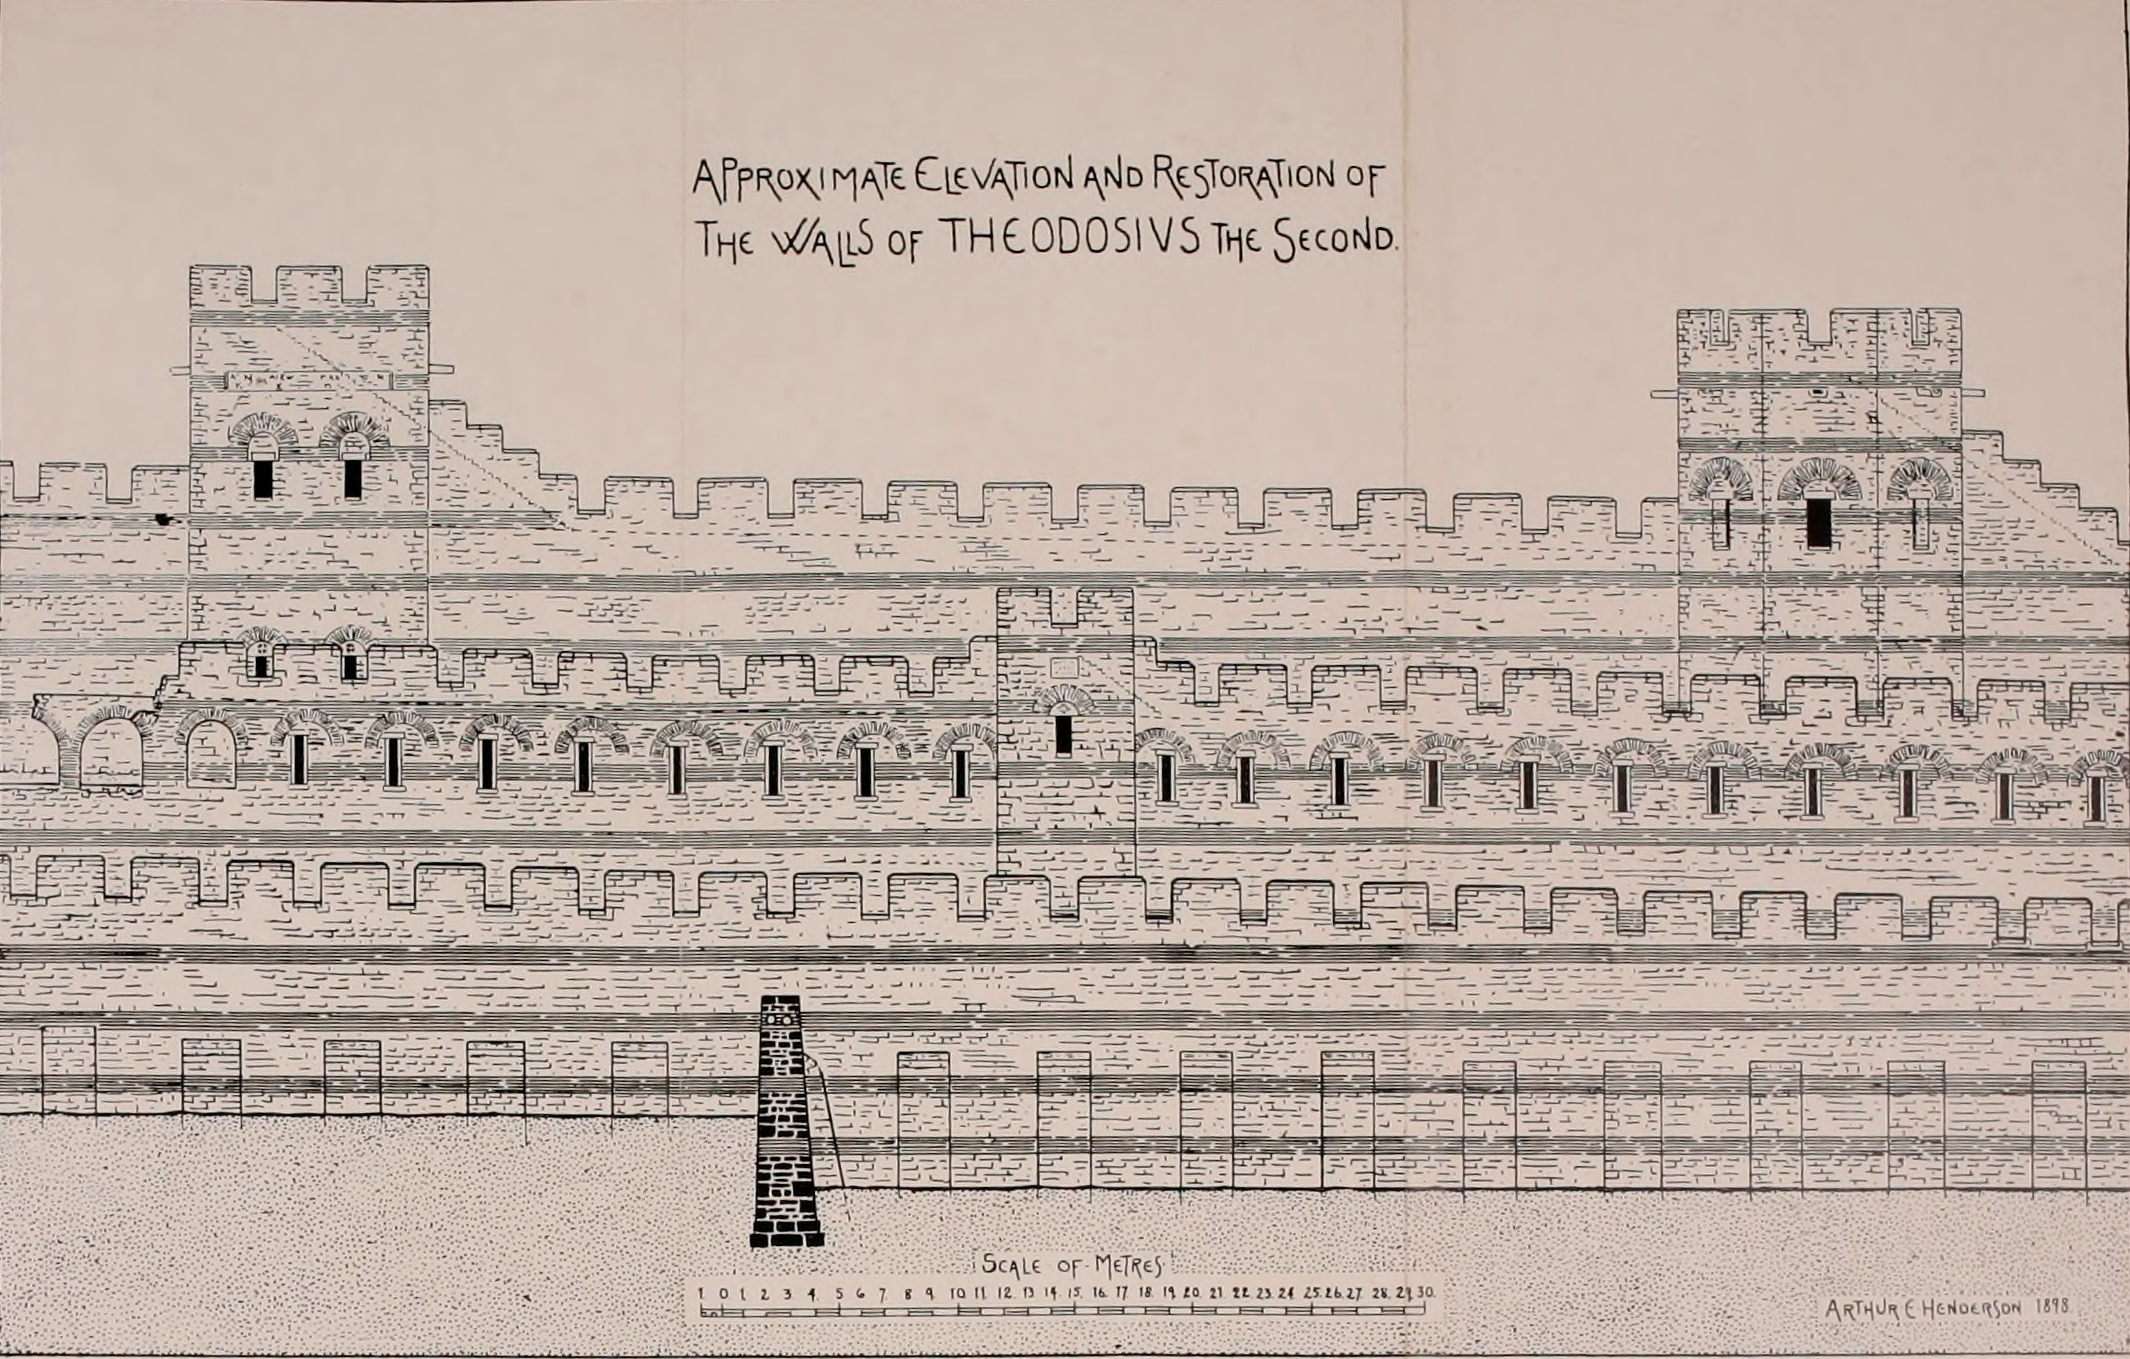 APPROXIMATE ELEVATION AND RESTORATION OF
THE WALLS OF THEODOSIVS THE SECOND.
SCALE OF METRES
1 0 1 2 3 4 5 6 7 8 9 10 11 12 13 14 15 16 17 18 19 20 21 22 23 24 25 26 27 28 29 30
ARTHUR E HENDERSON 1898.